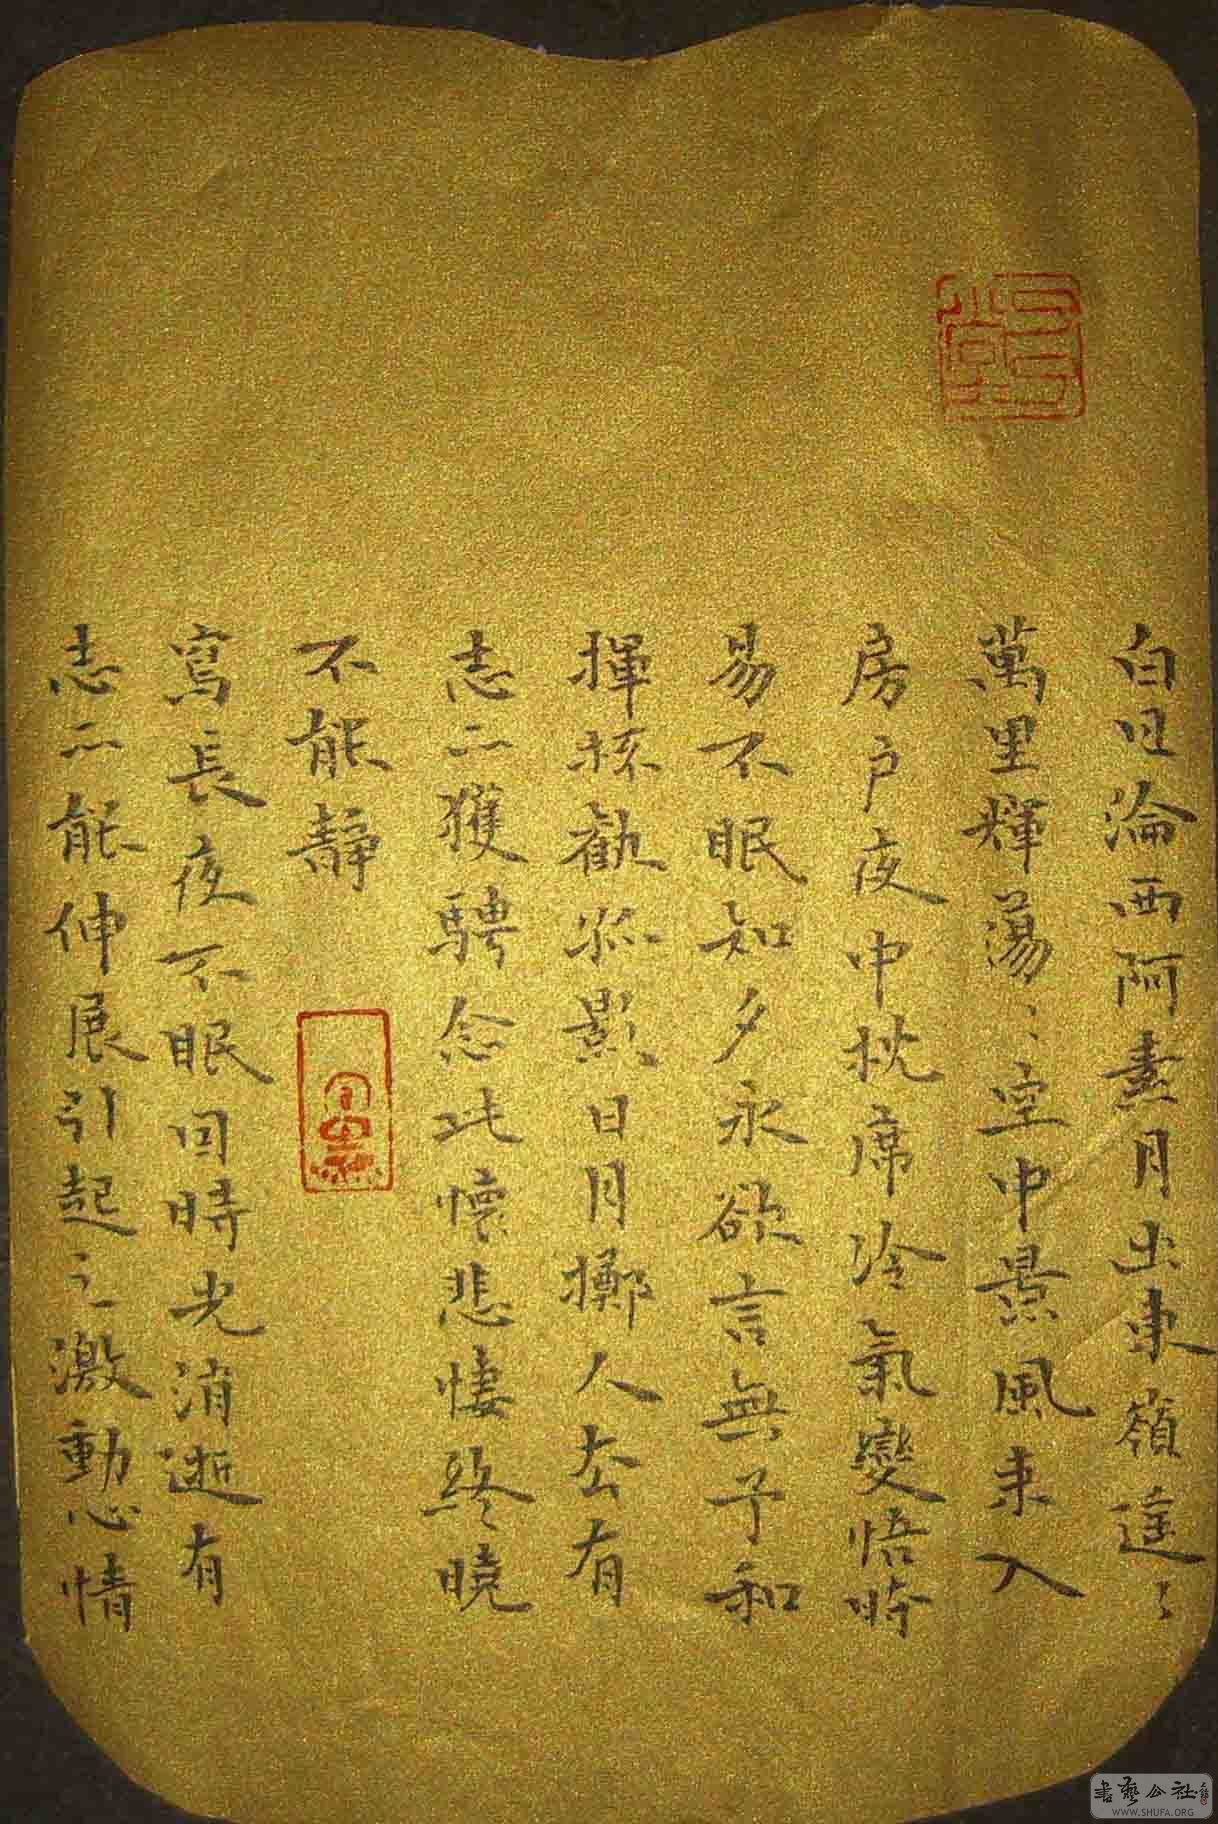 白日淪西阿素月出東嶺遥〻
萬里輝蕩〻空中景風来入
房户夜中枕席冷氣變悟時
易不眠知夕永欲言無予和
揮杯勸孤影日月擲人去有
志不獲騁念此懷悲悽終曉
不能靜
寫長夜不眠回時光消逝有
志不能伸展引起之激動心情
書藝公社
WWW.SHUFA.ORG